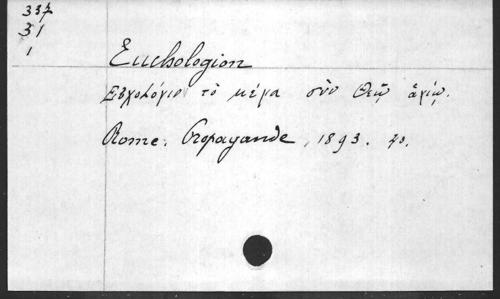 337
31
1
Euchologion
Εὐχολόγιον τὸ μέγα σὺν Θεῷ ἁγίῳ.
Rome. Propagande, 1893. fo.